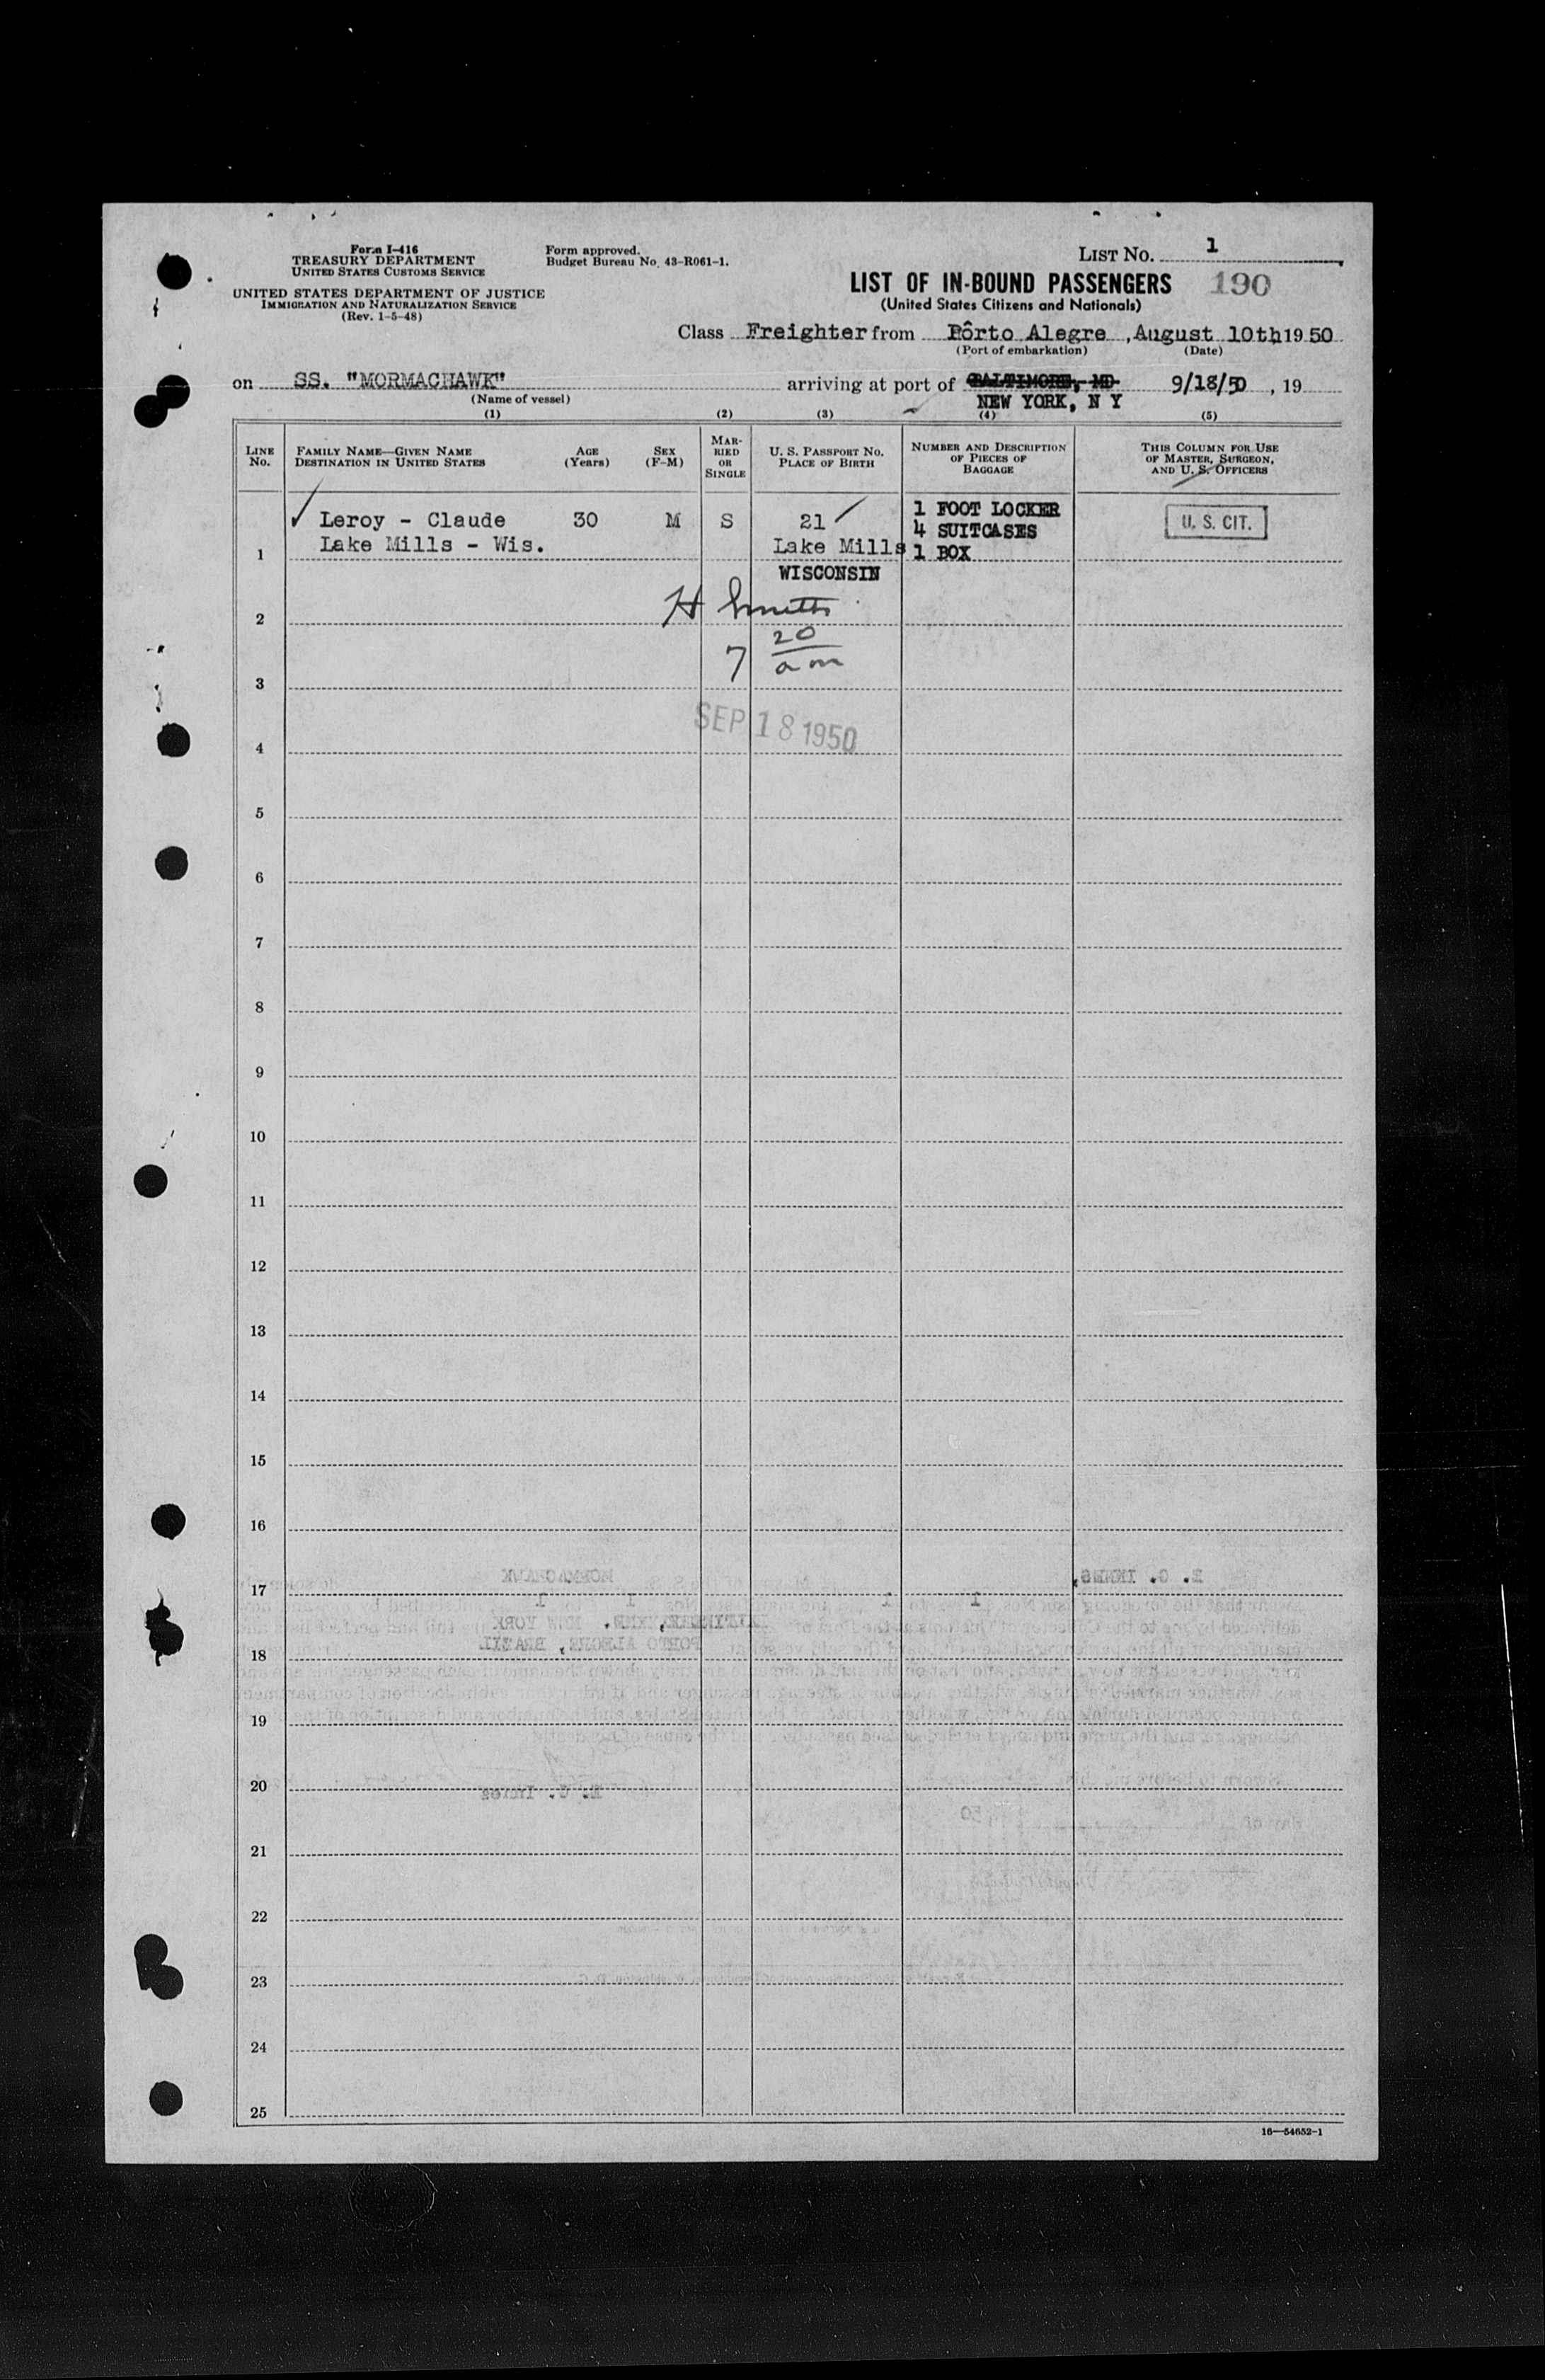 Form I-416
TREASURY DEPARTMENT
UNITED STATES CUSTOMS SERVICE
UNITED STATES DEPARTMENT OF JUSTICE
IMMIGRATION AND NATURALIZATION SERVICE
(Rev. 1-5-48)
Form approved.
Budget Bureau No. 43-R061-1.
LIST NO. 1
LIST OF IN-BOUND PASSENGERS 190
(United States Citizens and Nationals)
Class Freighter from Pôrto Alegre, August 10th 1950
(Port of embarkation) (Date)
on SS. "MORMACHAWK" arriving at port of BALTIMORE, MD 9/18/50, 19
(Name of vessel) NEW YORK, N Y
(1) (2) (3) (4) (5)
LINE No.
FAMILY NAME—GIVEN NAME
DESTINATION IN UNITED STATES
AGE
(Years)
SEX
(F-M)
MAR-
RIED
OR
SINGLE
U. S. PASSPORT NO.
PLACE OF BIRTH
NUMBER AND DESCRIPTION
OF PIECES OF
BAGGAGE
THIS COLUMN FOR USE
OF MASTER, SURGEON,
AND U. S. OFFICERS
1
Leroy - Claude 30 M S 21
Lake Mills - Wis.
Lake Mills
WISCONSIN
1 FOOT LOCKER
4 SUITCASES
1 BOX
U. S. CIT.
2
H Smith
3
7 20
am
4
SEP 18 1950
5
6
7
8
9
10
11
12
13
14
15
16
17
18
19
20
21
22
23
24
25
16—54652-1